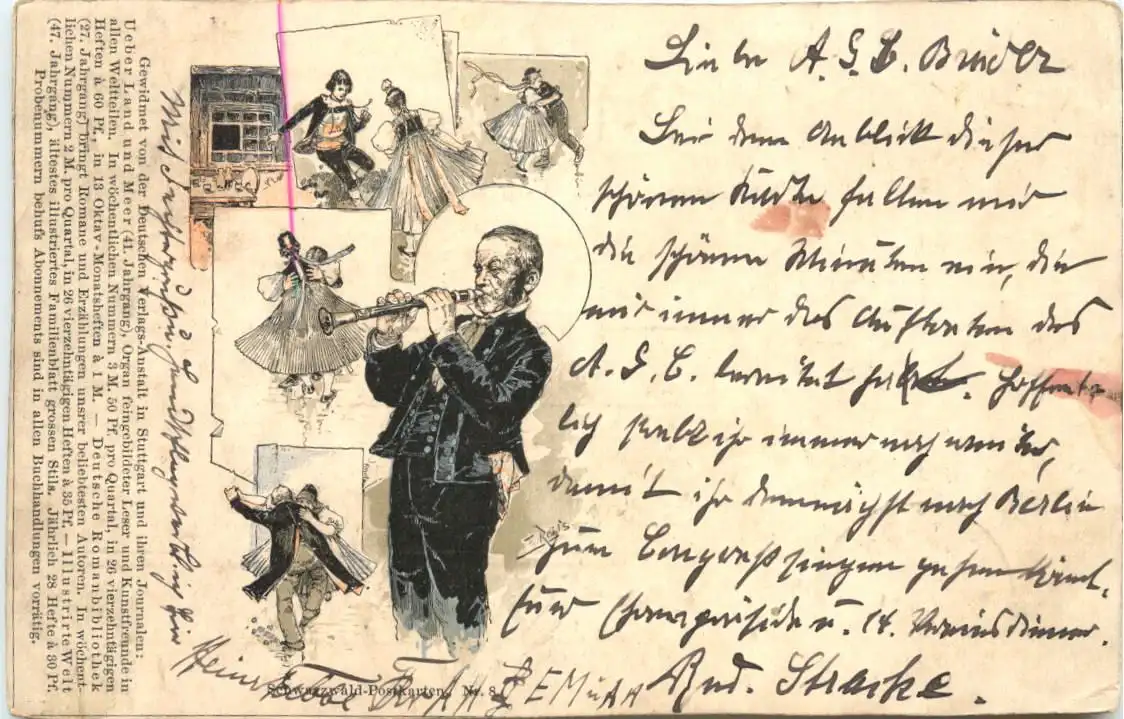 Gewidmet von der Deutschen Verlags-Anstalt in Stuttgart und ihren Journalen:
Ueber Land und Meer (41. Jahrgang), Organ feingebildeter Leser und Kunstfreunde in
allen Weltteilen. In wöchentlichen Nummern 3 M. 50 Pf. pro Quartal, in 26 vierzehntägigen
Heften à 60 Pf., in 13 Oktav-Monatsheften à 1 M. — Deutsche Romanbibliothek
(27. Jahrgang) bringt Romane und Erzählungen unsrer beliebtesten Autoren. In wöchent-
lichen Nummern 2 M. pro Quartal, in 26 vierzehntägigen Heften à 35 Pf. — Illustrirte Welt
(47. Jahrgang), ältestes illustriertes Familienblatt grossen Stils. Jährlich 28 Hefte à 30 Pf.
Probenummern behufs Abonnements sind in allen Buchhandlungen vorrätig.
Schwarzwald-Postkarten. Nr. 8
Liebe A. G. C. Brüder
Bei dem Anblick dieser
schönen Karte fallen mir
die schönen Minuten ein, die
mir immer das Auftreten des
A. G. C. bereitet hat. Hoffent-
lich probt ihr immer noch weiter,
damit ihr demnächst nach Berlin
zum Congresssingen gehen könnt.
Euer u. Vereinsdiener.
Rud. Stracke.